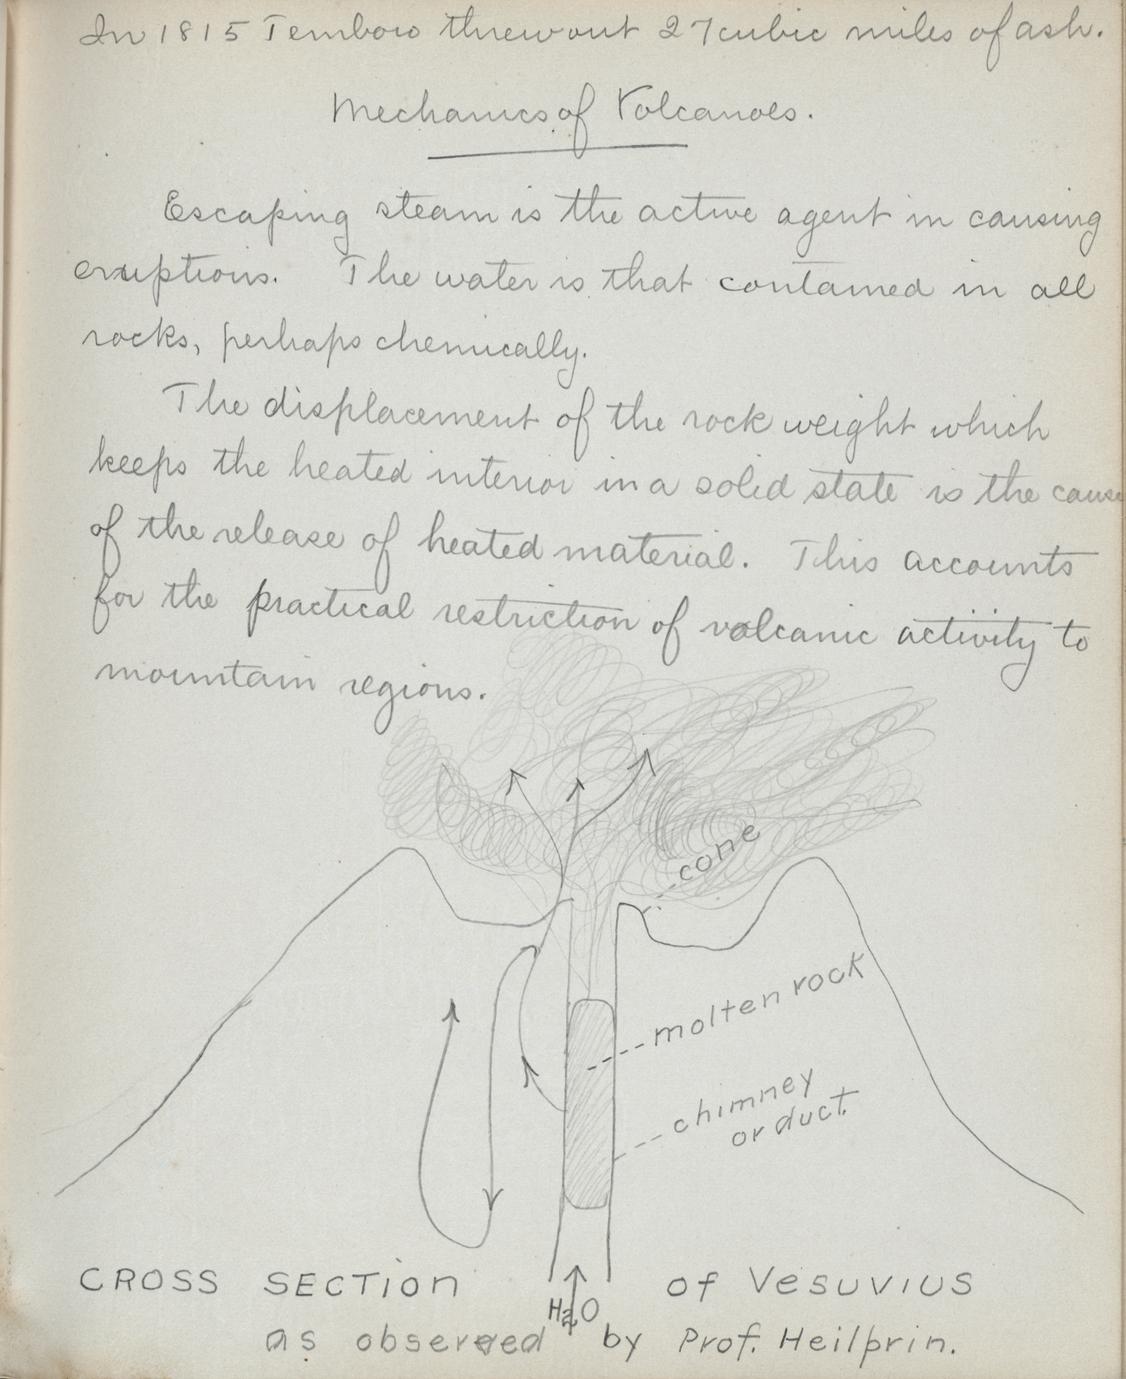 In 1815 Temboro threw out 27 cubic miles of ash.
Mechanics of Volcanoes.
Escaping steam is the active agent in causing
eruptions. The water is that contained in all
rocks, perhaps chemically.
The displacement of the rock weight which
keeps the heated interior in a solid state is the cause
of the release of heated material. This accounts
for the practical restriction of volcanic activity to
mountain regions.
cone
molten rock
chimney
or duct.
CROSS SECTION of Vesuvius
H2O
as observed by Prof. Heilprin.